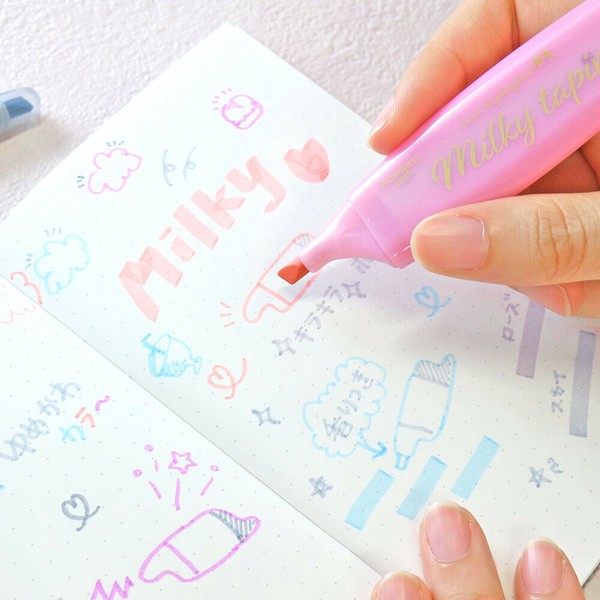 Milky
Milky tapi
キラキラ
香りつき
ローズ
スカイ
ゆめかわ
カラ〜